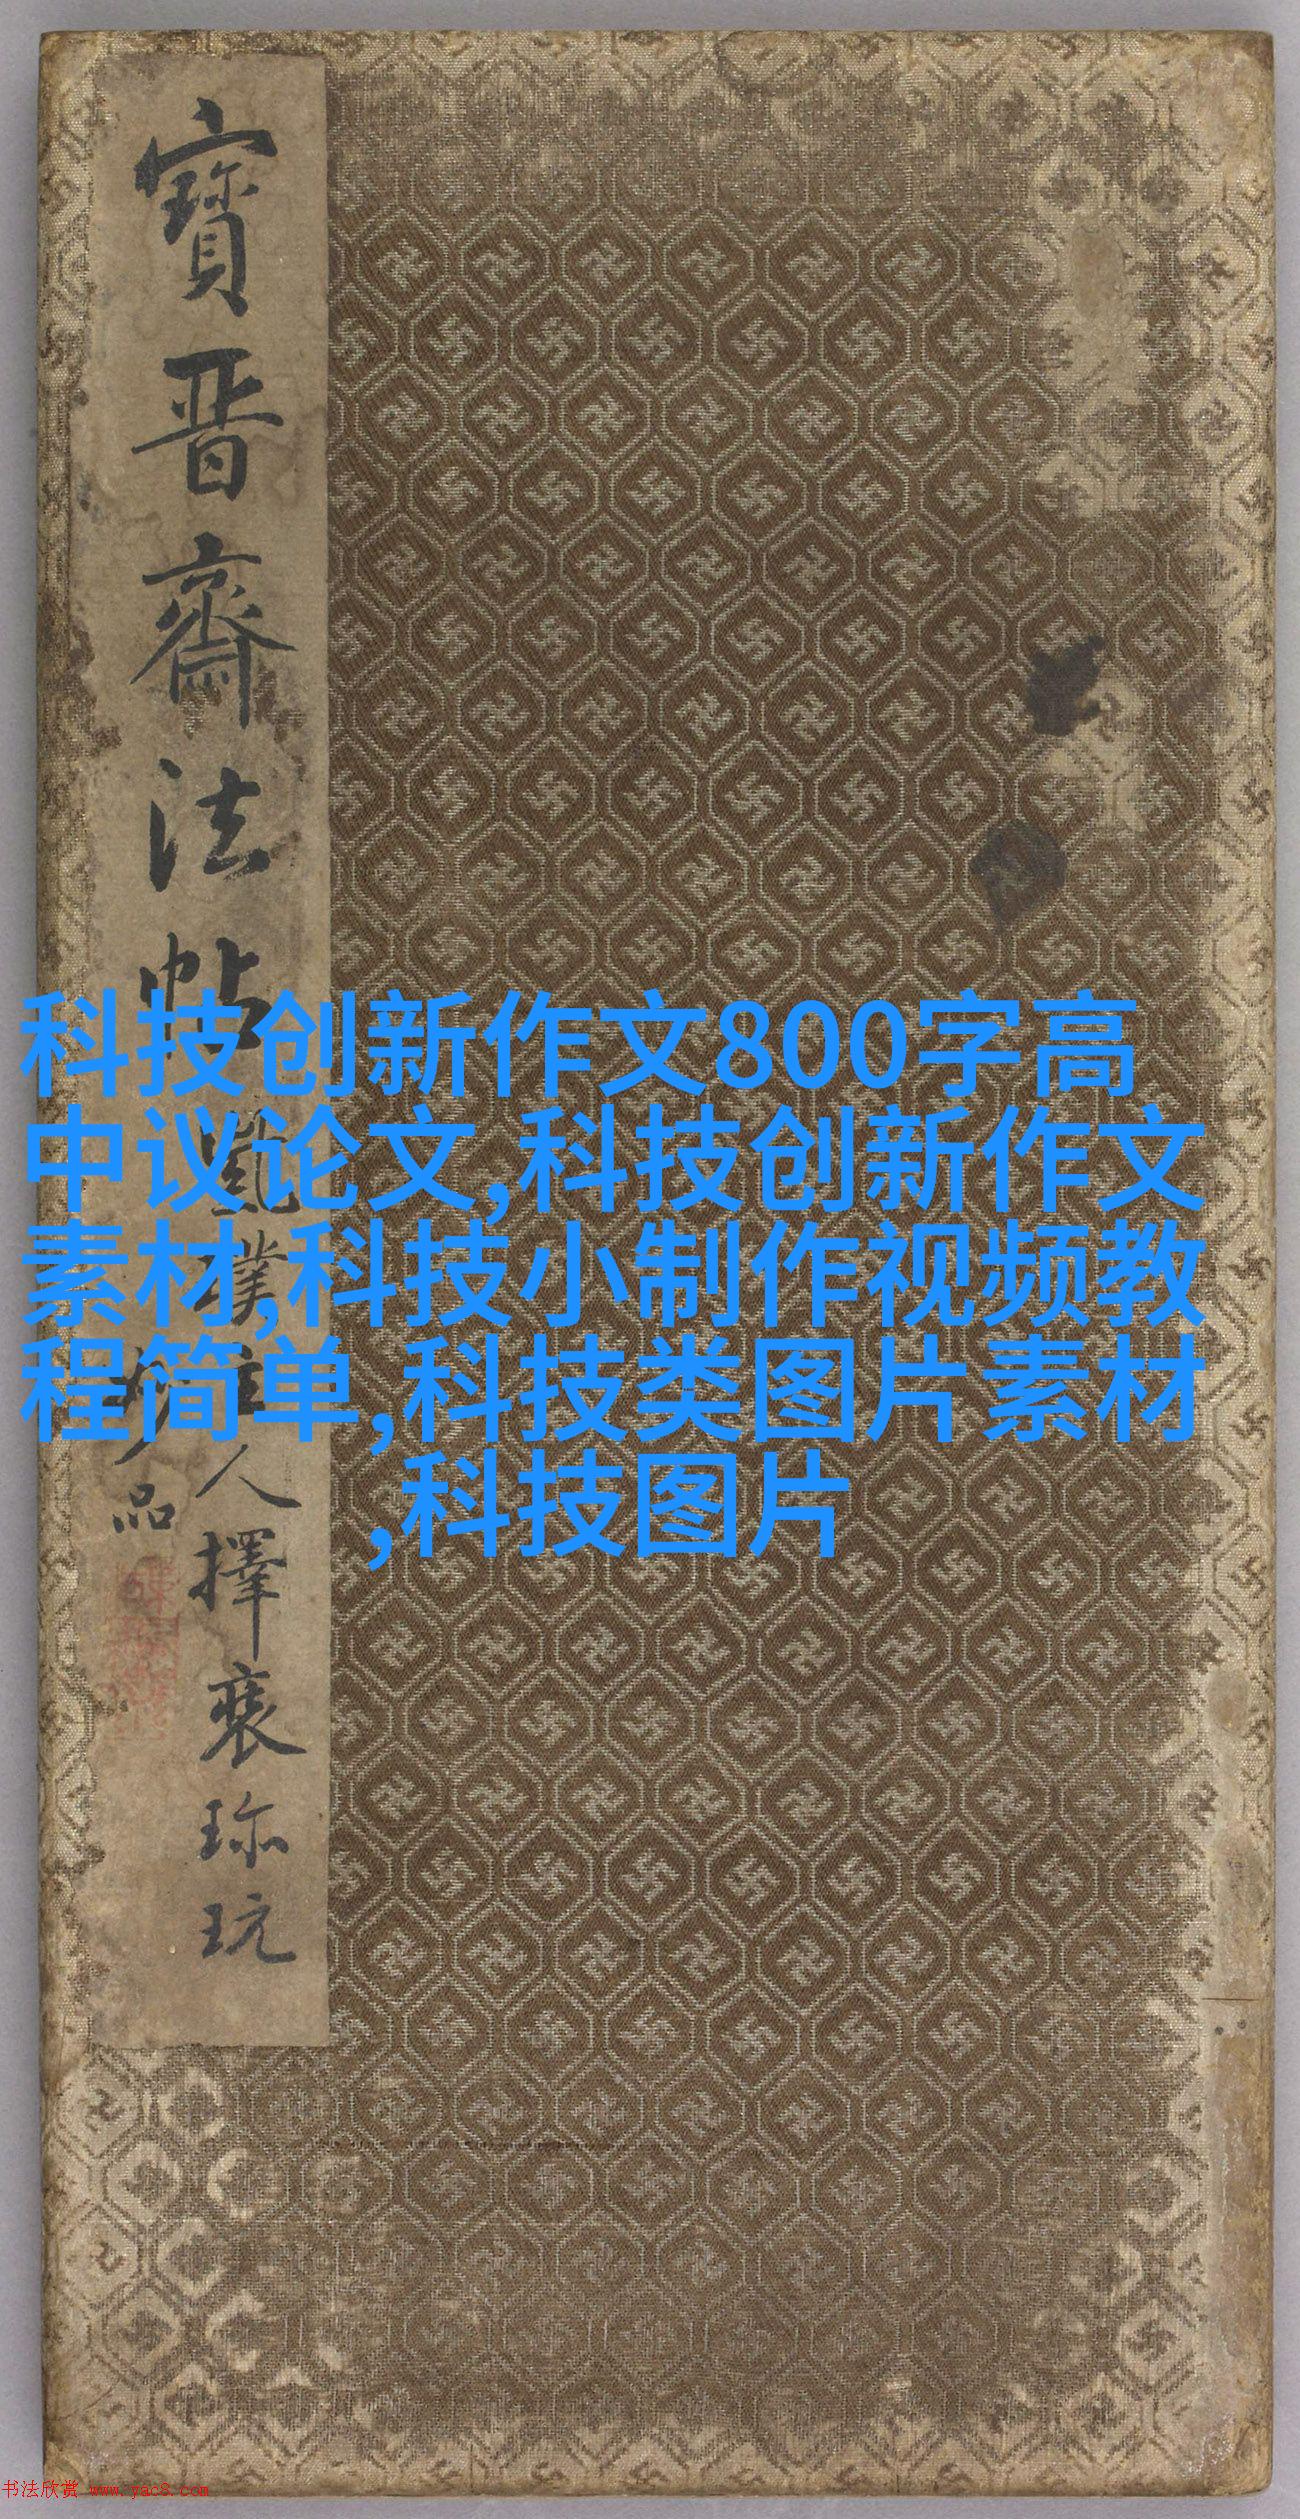 寳晋齋法帖
人擇裘珎玩
品
科技创新作文800字高
中议论文,科技创新作文
素材,科技小制作视频教
程简单,科技类图片素材
,科技图片
书法欣赏 www.yac8.com